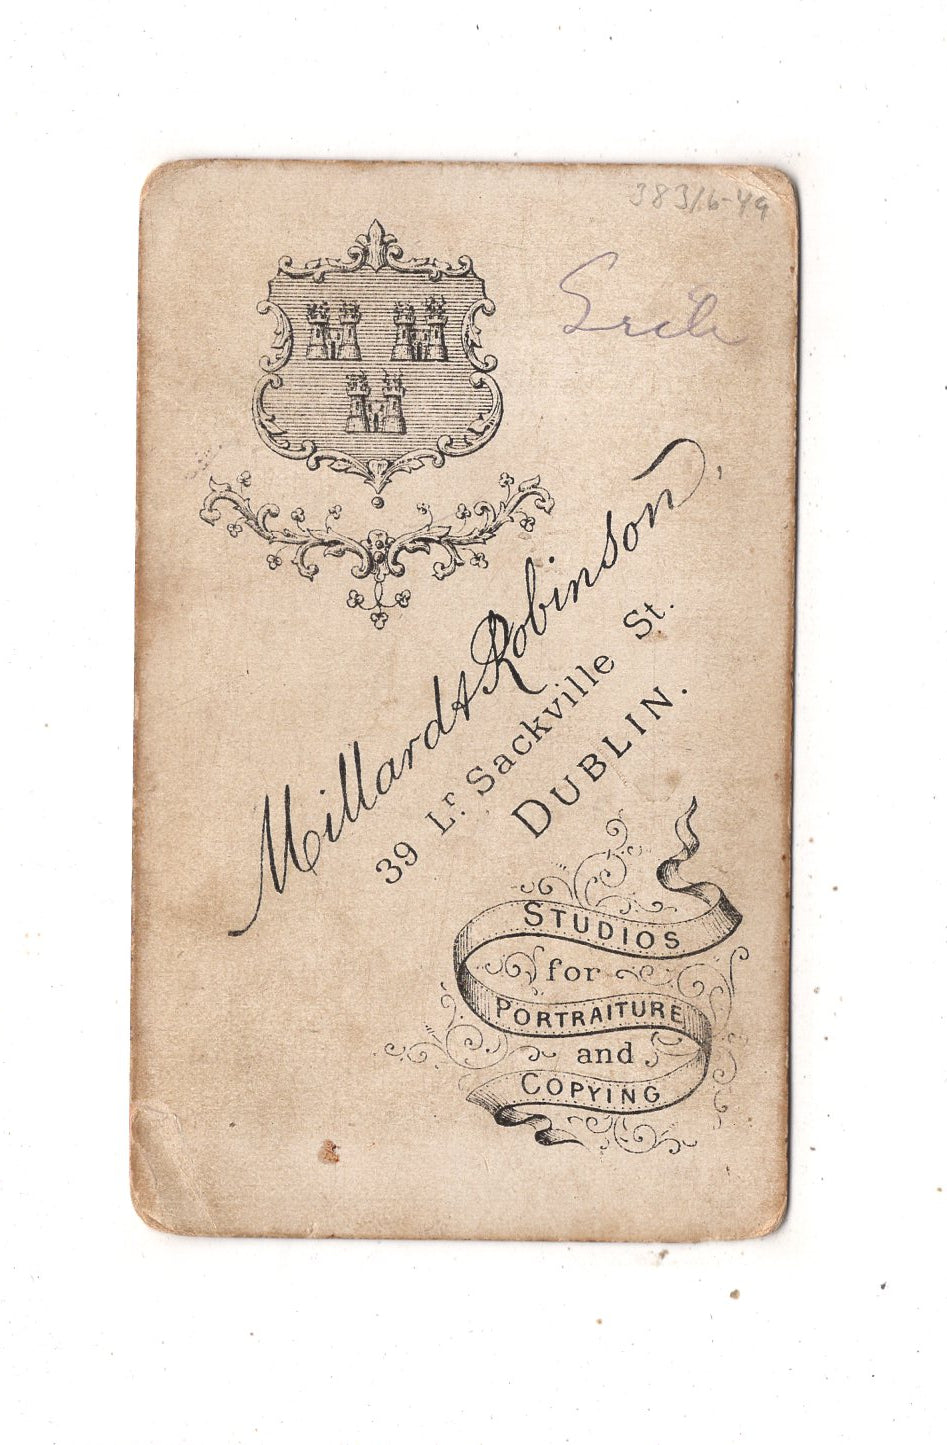 383/6-49
Millard & Robinson,
39 Lr. Sackville St.
DUBLIN.
STUDIOS
for
PORTRAITURE
and
COPYING